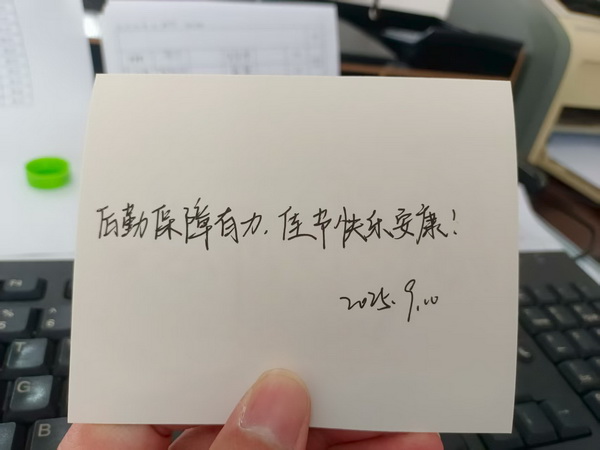 后勤保障有力,佳节快乐安康!
2025.9.10
T
G
B